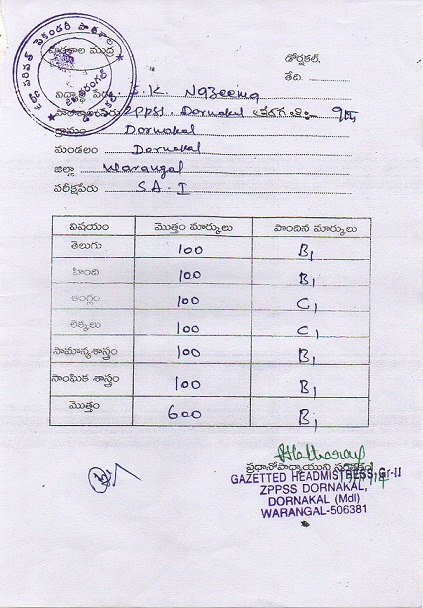 పాఠశాల ముద్ర
డోర్నకల్.
తేది.
విద్యార్థి పేరు S.K. Nazeema
పాఠశాల పేరు ZPPSS. Dornakal తరగతి:
గ్రామం Dornakal
మండలం Dornakal
జిల్లా Warangal
పరీక్షపేరు SA-I
విషయం మొత్తం మార్కులు పొందిన మార్కులు
తెలుగు 100 B1
హింది 100 B1
ఆంగ్లం 100 C1
లెక్కలు 100 C1
సామాన్యశాస్త్రం 100 B1
సాంఘిక శాస్త్రం 100 B1
మొత్తం 600 B1
ప్రధానోపాధ్యాయుని సంతకం
GAZETTED HEADMISTRESS Gr-II
ZPPSS DORNAKAL,
DORNAKAL (Mdl)
WARANGAL-506381